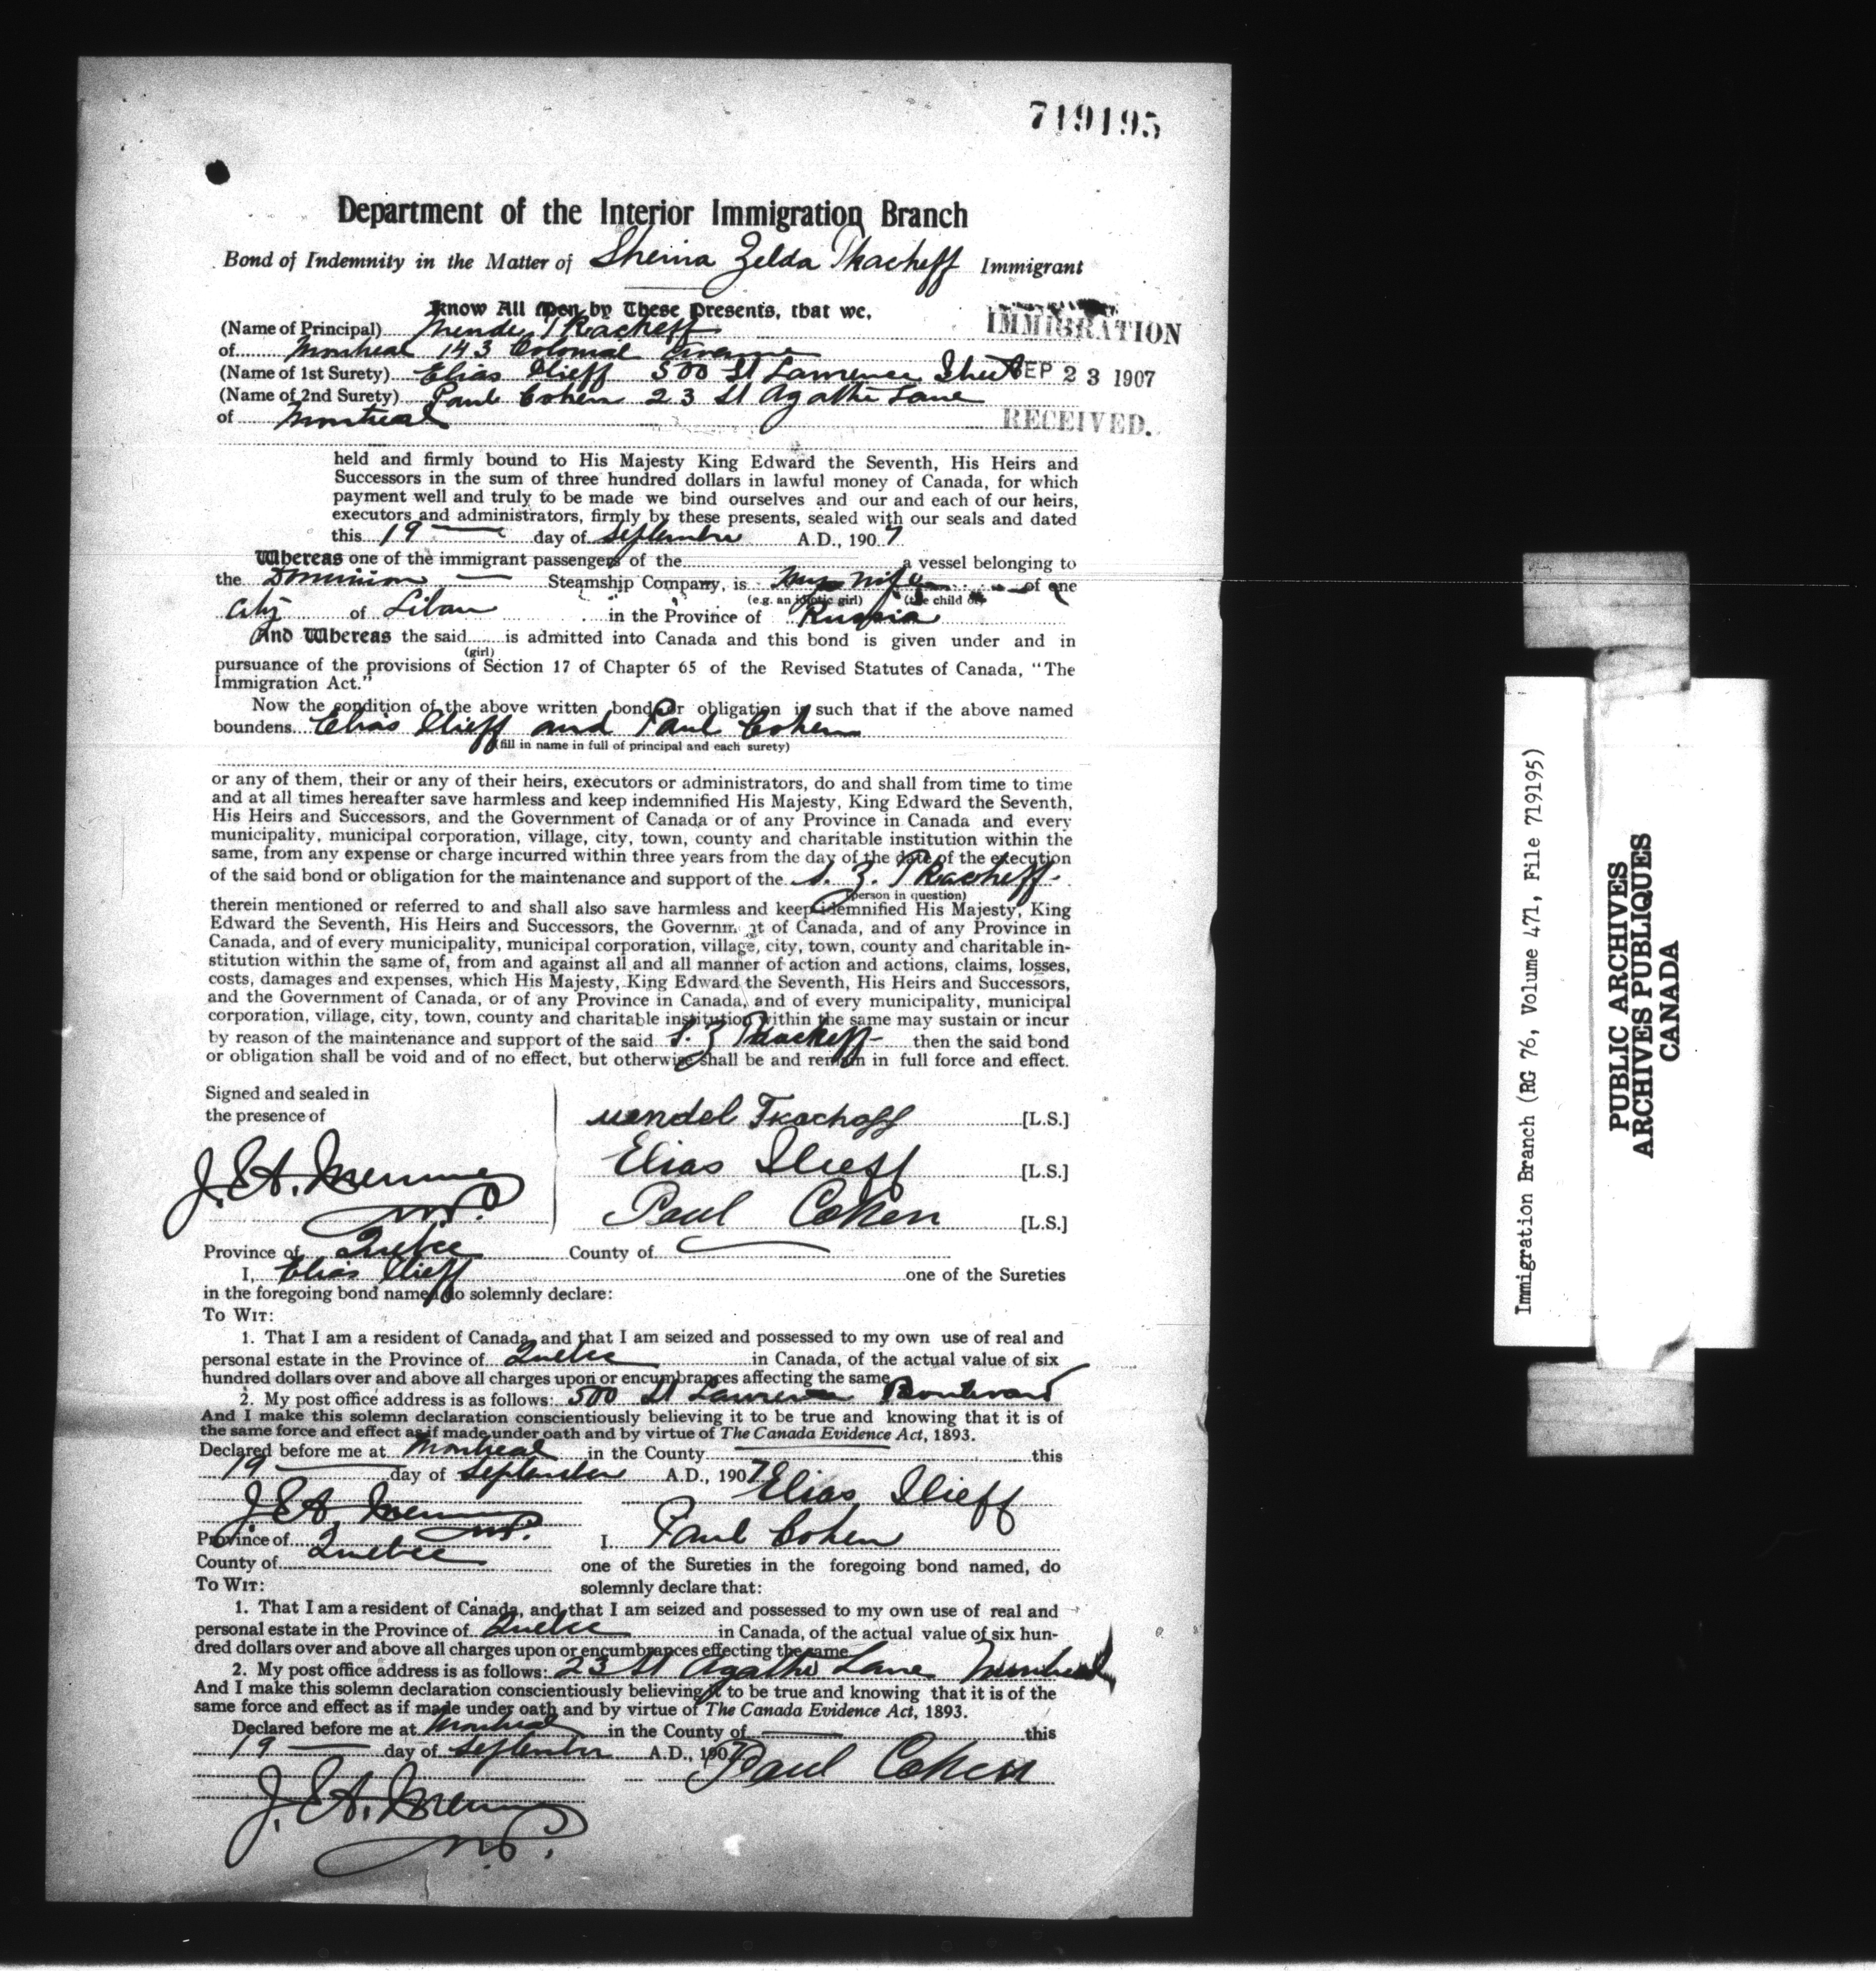 719195
Department of the Interior Immigration Branch
Bond of Indemnity in the Matter of Sheina Zelda Tkacheff Immigrant
Know All Men by These Presents, that we,
(Name of Principal) Mendel Tkacheff
IMMIGRATION
of Montreal 143 Colonial Avenue
(Name of 1st Surety) Elias Ilieff 500 St Lawrence Street
SEP 23 1907
(Name of 2nd Surety) Paul Cohen 23 St Agathe Lane
of Montreal
RECEIVED.
held and firmly bound to His Majesty King Edward the Seventh, His Heirs and
Successors in the sum of three hundred dollars in lawful money of Canada, for which
payment well and truly to be made we bind ourselves and our and each of our heirs,
executors and administrators, firmly by these presents, sealed with our seals and dated
this 19 day of September A.D., 1907
Whereas one of the immigrant passengers of the a vessel belonging to
the Dominion Steamship Company, is my wife of one
(e.g. an idiotic girl) (the child of)
City of Libau in the Province of Russia
And Whereas the said is admitted into Canada and this bond is given under and in
(girl)
pursuance of the provisions of Section 17 of Chapter 65 of the Revised Statutes of Canada, "The
Immigration Act."
Now the condition of the above written bond or obligation is such that if the above named
boundens Elias Ilieff and Paul Cohen
(fill in name in full of principal and each surety)
or any of them, their or any of their heirs, executors or administrators, do and shall from time to time
and at all times hereafter save harmless and keep indemnified His Majesty, King Edward the Seventh,
His Heirs and Successors, and the Government of Canada or of any Province in Canada and every
municipality, municipal corporation, village, city, town, county and charitable institution within the
same, from any expense or charge incurred within three years from the day of the date of the execution
of the said bond or obligation for the maintenance and support of the S. Z. Tkacheff
(person in question)
therein mentioned or referred to and shall also save harmless and keep idemnified His Majesty, King
Edward the Seventh, His Heirs and Successors, the Government of Canada, and of any Province in
Canada, and of every municipality, municipal corporation, village, city, town, county and charitable in-
stitution within the same of, from and against all and all manner of action and actions, claims, losses,
costs, damages and expenses, which His Majesty, King Edward the Seventh, His Heirs and Successors,
and the Government of Canada, or of any Province in Canada, and of every municipality, municipal
corporation, village, city, town, county and charitable institution within the same may sustain or incur
by reason of the maintenance and support of the said S. Z Tkacheff then the said bond
or obligation shall be void and of no effect, but otherwise shall be and remain in full force and effect.
Signed and sealed in
the presence of
Mendel Tkachoff [L.S.]
Elias Ilieff [L.S.]
Paul Cohen [L.S.]
Province of Quebec County of
I, Elias Ilieff one of the Sureties
in the foregoing bond named do solemnly declare:
TO WIT:
1. That I am a resident of Canada, and that I am seized and possessed to my own use of real and
personal estate in the Province of Quebec in Canada, of the actual value of six
hundred dollars over and above all charges upon or encumbrances affecting the same
2. My post office address is as follows: 500 St Lawrence Boulevard
And I make this solemn declaration conscientiously believing it to be true and knowing that it is of
the same force and effect as if made under oath and by virtue of The Canada Evidence Act, 1893.
Declared before me at Montreal in the County this
19 day of September A.D., 1907
Elias Ilieff
Province of Quebec
County of
I Paul Cohen
one of the Sureties in the foregoing bond named, do
TO WIT:
solemnly declare that:
1. That I am a resident of Canada, and that I am seized and possessed to my own use of real and
personal estate in the Province of Quebec in Canada, of the actual value of six hun-
dred dollars over and above all charges upon or encumbrances effecting the same
2. My post office address is as follows: 23 St Agathe Lane Montreal
And I make this solemn declaration conscientiously believing it to be true and knowing that it is of the
same force and effect as if made under oath and by virtue of The Canada Evidence Act, 1893.
Declared before me at Montreal in the County of this
19 day of September A.D., 1907
Paul Cohen
Immigration Branch (RG 76, Volume 471, File 719195)
PUBLIC ARCHIVES
ARCHIVES PUBLIQUES
CANADA